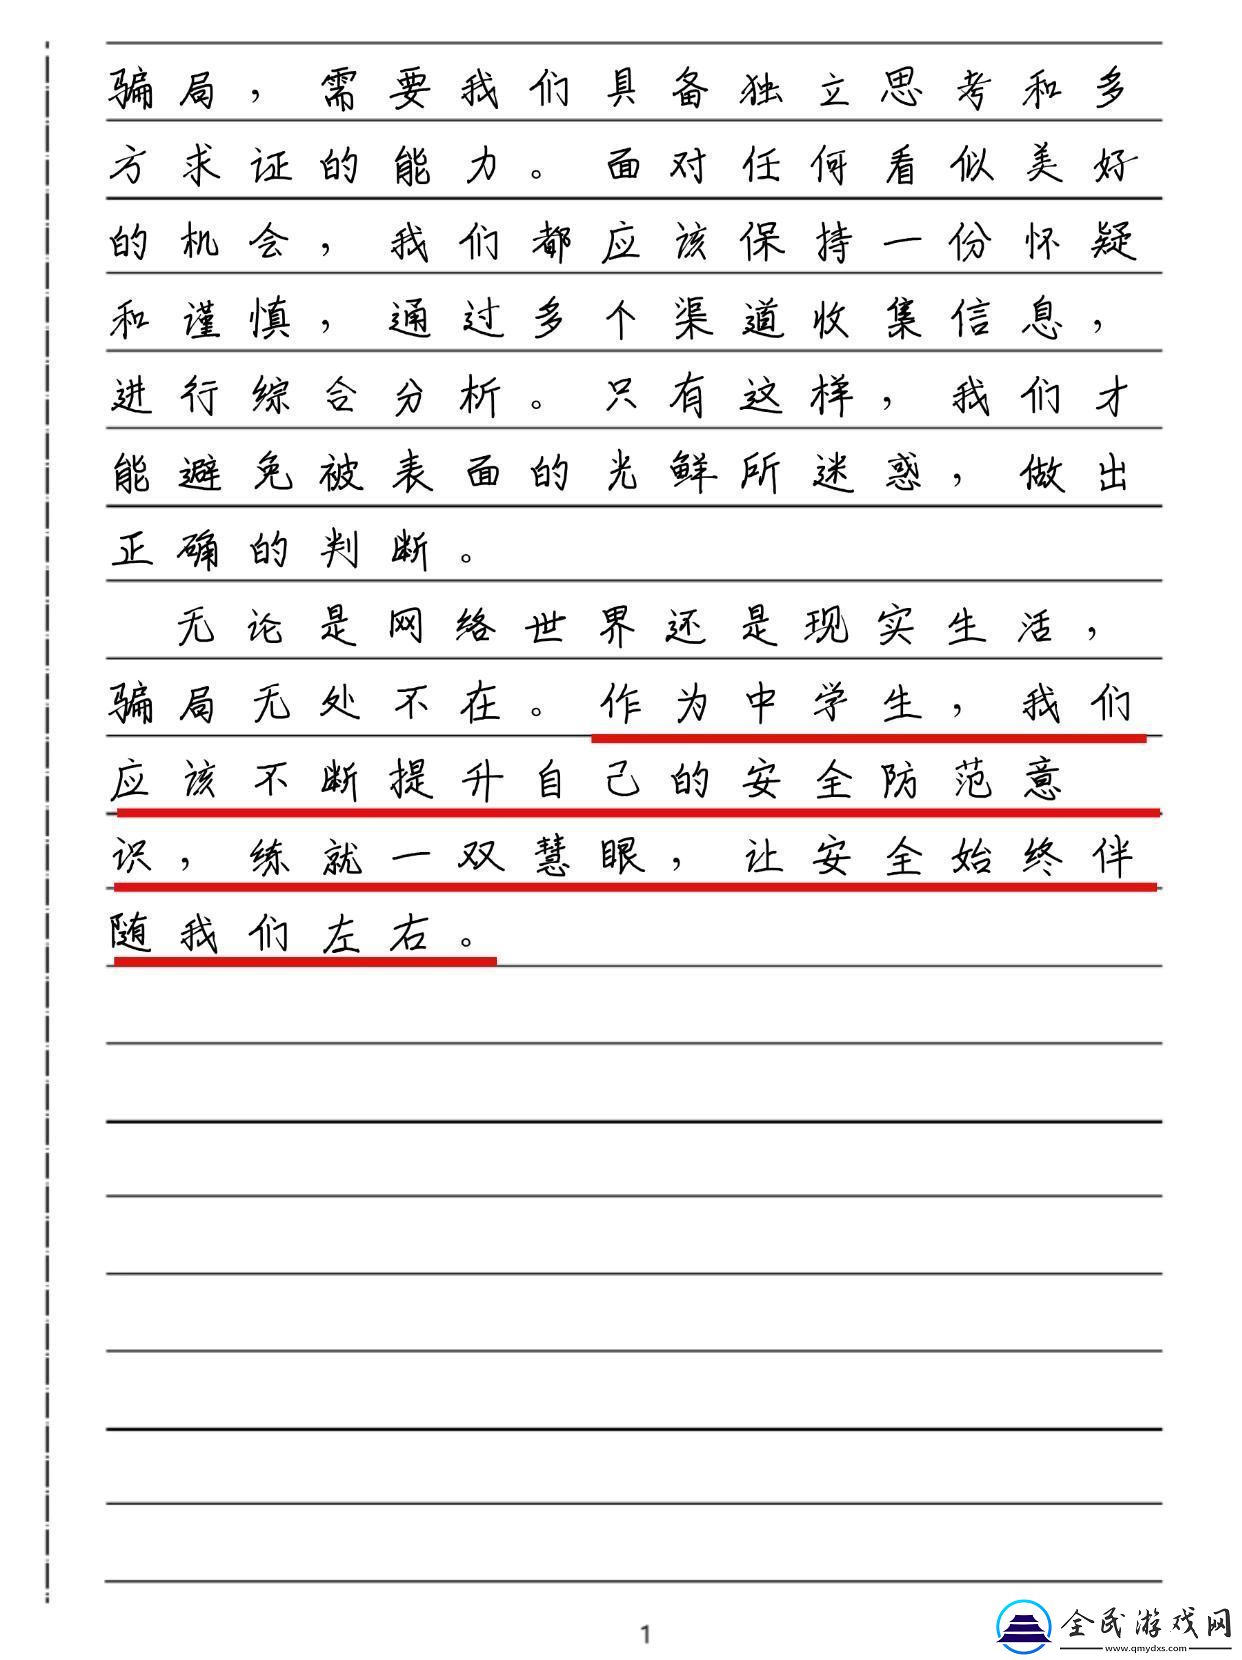 骗局，需要我们具备独立思考和多
方求证的能力。面对任何看似美好
的机会，我们都应该保持一份怀疑
和谨慎，通过多个渠道收集信息，
进行综合分析。只有这样，我们才
能避免被表面的光鲜所迷惑，做出
正确的判断。
无论是网络世界还是现实生活，
骗局无处不在。作为中学生，我们
应该不断提升自己的安全防范意
识，练就一双慧眼，让安全始终伴
随我们左右。
1
全民游戏网
www.qmydxs.com